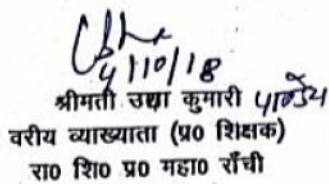 4/10/18
श्रीमती उषा कुमारी पाण्डेय
वरीय व्याख्याता (प्र० शिक्षक)
रा० शि० प्र० महा० राँची